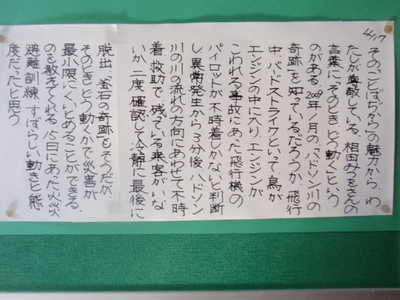 4/17
その、ことば ぢから の魅力から、わ
たしが尊敬している、相田みつをさんの
言葉に「そのときどう動く」という
のがある。2009年1月の「ハドソン川の
奇跡」を知っているだろうか。飛行
中、バードストライクといって、鳥が
エンジンの中に入り、エンジンが
こわれる事故にあった飛行機の
パイロットが、不時着しかないと判断
し、異常発生から3分後、ハドソン
川の川の流れの方向にあわせて不時
着、救助で、残っている乗客がいな
いか、二度確認して冷静に最後に
脱出。「宝石の奇跡」もそうだが、
そのときどう動くかで、災害が
最小限にくいとめることができる。
のを教えてくれる。今日にあった火災
避難訓練、すばらしい動きと態
度だったと思う。